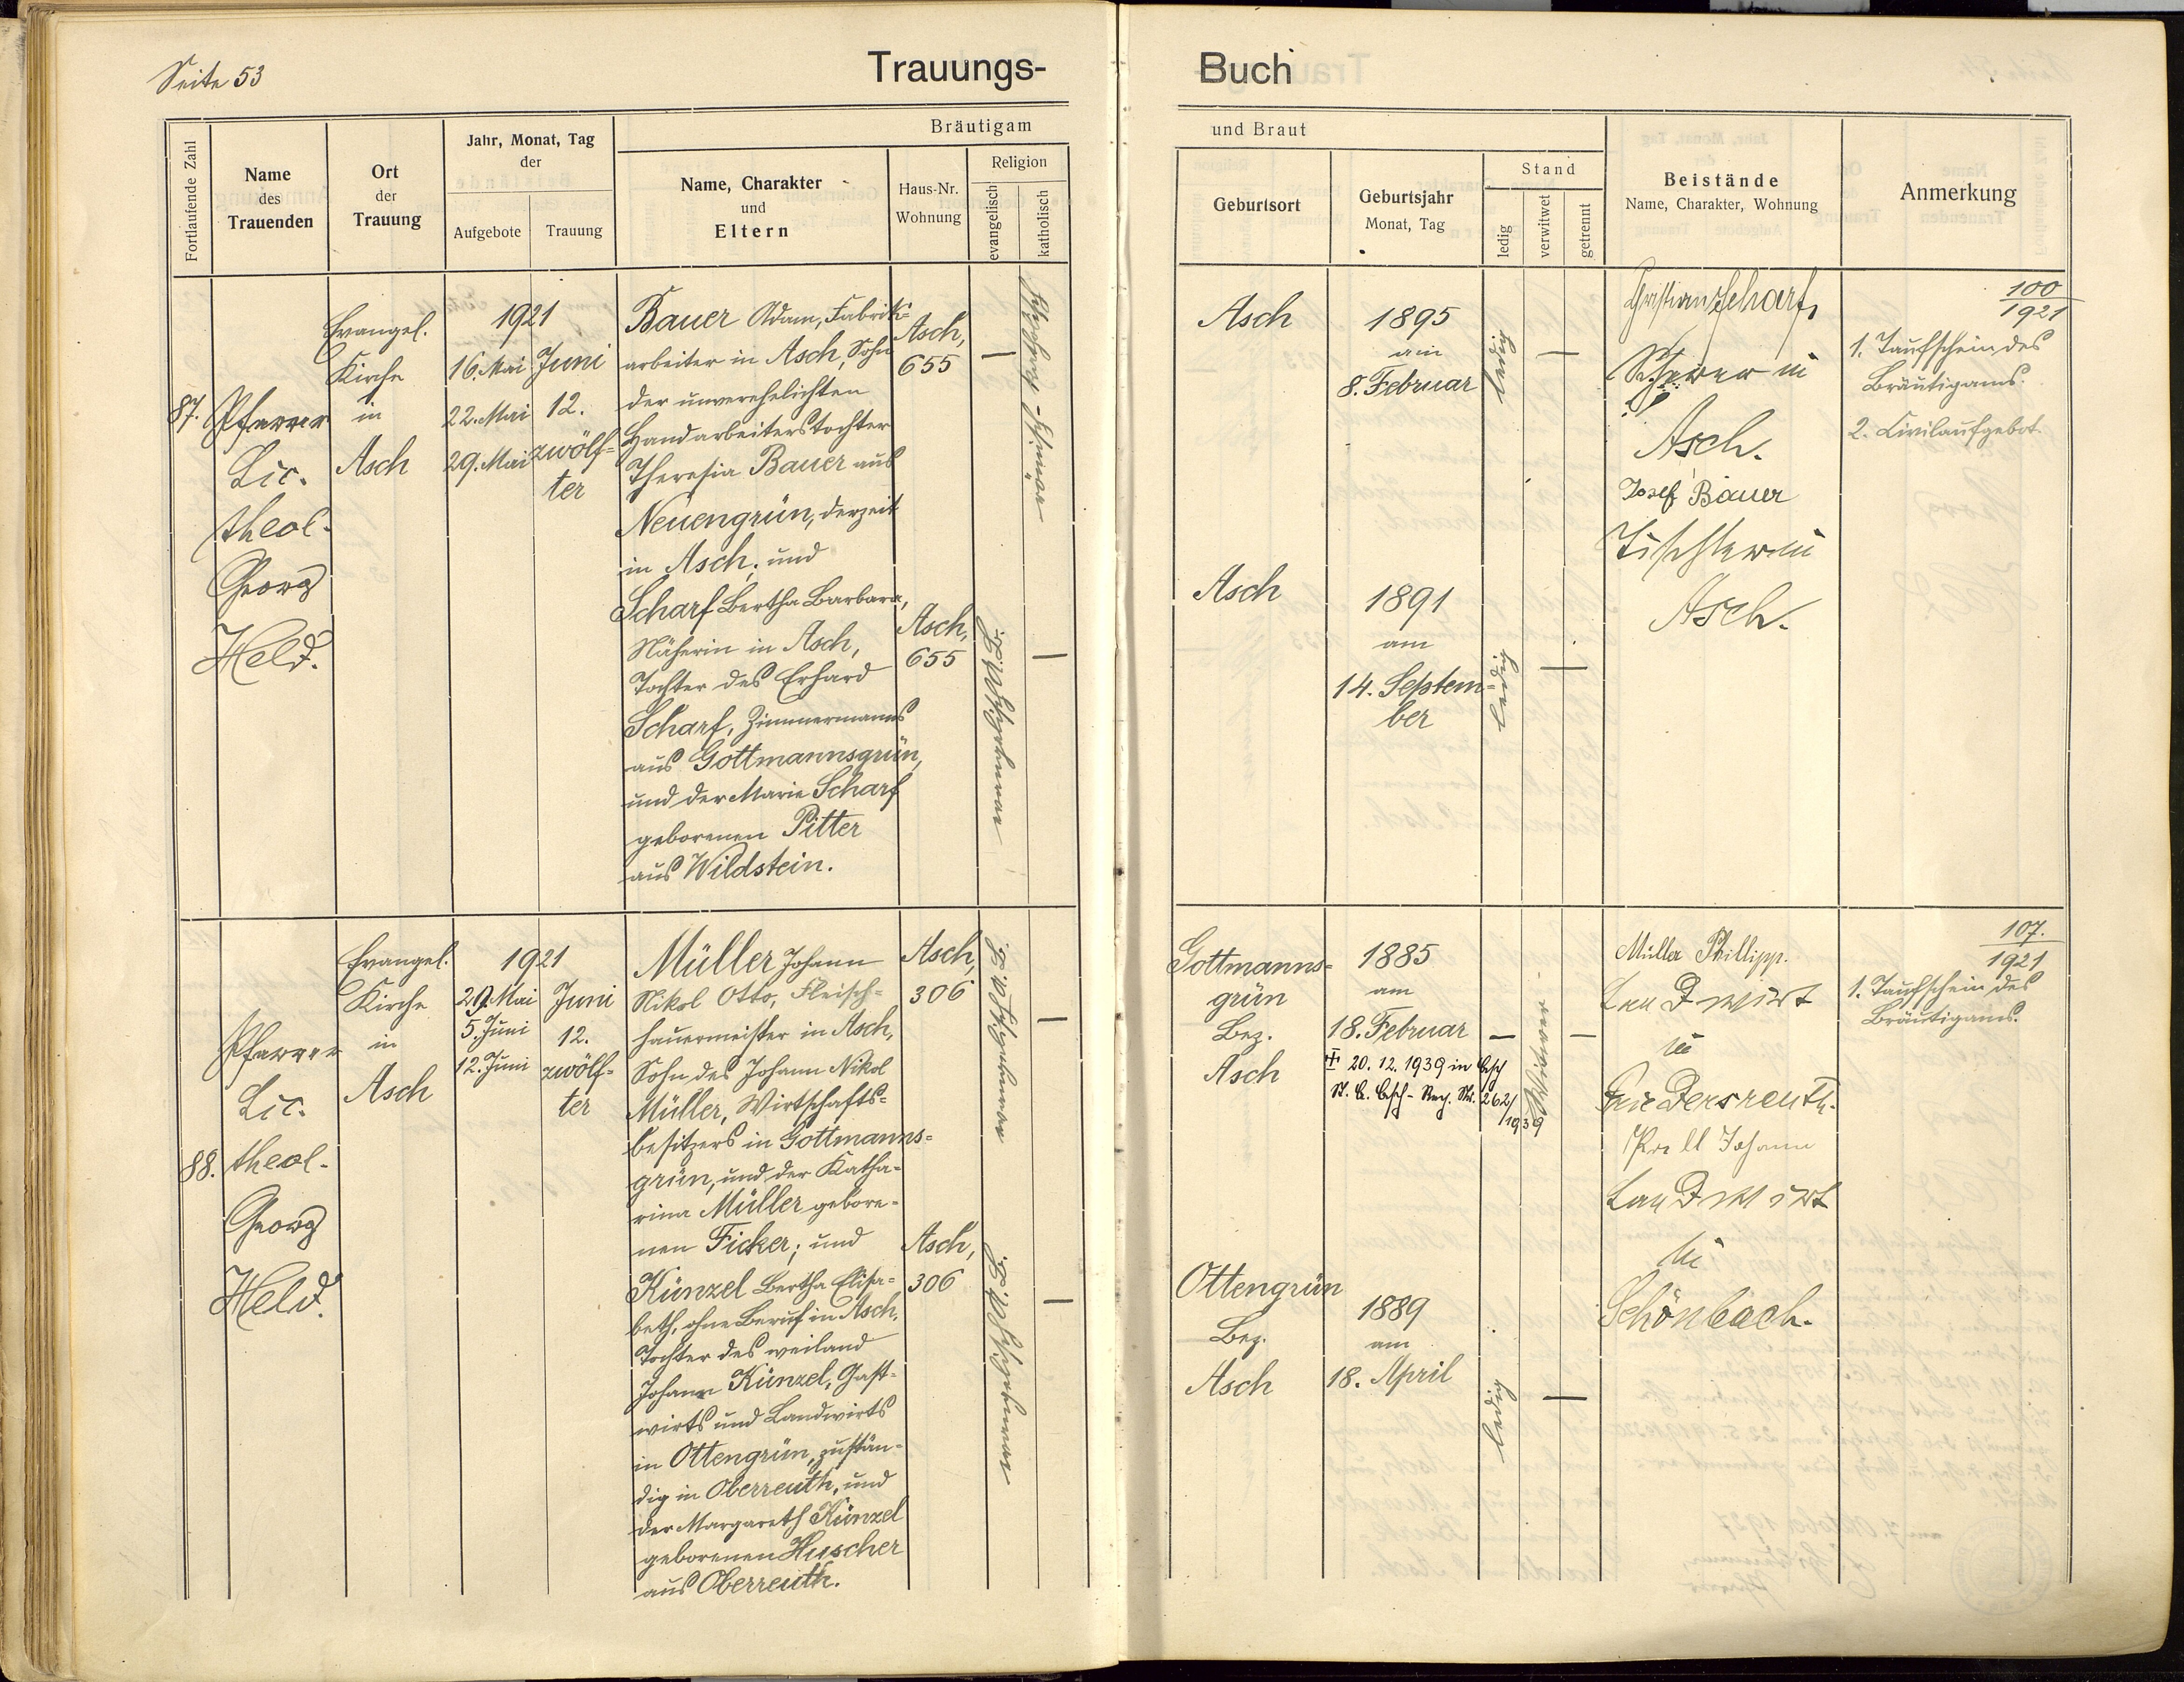 Seite 53
Trauungs-
Buch
Fortlaufende Zahl
Name
des
Trauenden
Ort
der
Trauung
Jahr, Monat, Tag
der
Aufgebote
Trauung
Bräutigam
Name, Charakter
und
Eltern
Haus-Nr.
Wohnung
Religion
evangelisch
katholisch
und Braut
Geburtsort
Geburtsjahr
Monat, Tag
Stand
ledig
verwitwet
getrennt
Beistände
Name, Charakter, Wohnung
Anmerkung
87.
Pfarrer
Lic.
theol.
Georg
Held.
Evangel.
Kirche
in
Asch
1921
16. Mai
22. Mai
29. Mai
Juni
12.
zwölf=
ter
Bauer Adam, Fabriks=
arbeiter in Asch, Sohn
der unverehelichten
Handarbeiterstochter
Theresia Bauer aus
Neuengrün, derzeit
in Asch; und
Scharf Bertha Barbara,
Näherin in Asch,
Tochter des Erhard
Scharf, Zimmermanns
aus Gottmannsgrün,
und der Marie Scharf
geborenen Pitter
aus Wildstein.
Asch,
655
—
Asch,
655
—
Asch
1895
am
8. Februar
ledig
—
Asch
1891
am
14. Septem=
ber
ledig
—
Christian Scharf,
in
Asch.
Josef Bauer
Tischler in
Asch.
100
1921
1. Taufschein des
Bräutigams.
2. Civilaufgebot.
88.
Pfarrer
Lic.
theol.
Georg
Held.
Evangel.
Kirche
in
Asch
1921
29. Mai
5. Juni
12. Juni
Juni
12.
zwölf=
ter
Müller Johann
Nikol Otto, Fleisch=
hauermeister in Asch,
Sohn des Johann Nikol
Müller, Wirtschafts=
besitzers in Gottmanns=
grün, und der Katha=
rina Müller gebore=
nen Ficker; und
Künzel Bertha Elisa=
beth, ohne Beruf in Asch,
Tochter des weiland
Johann Künzel, Gast=
wirts und Landwirts
in Ottengrün, zustän=
dig in Oberreuth, und
der Margareth Künzel
geborenen Huscher
aus Oberreuth.
Asch,
306
—
Asch,
306
—
Gottmanns=
grün
Bez.
Asch
1885
am
18. Februar
20. 12. 1939 in Asch
St. A. Asch - Reg. Nr. 262/
1939
—
verwitwet
—
Ottengrün
Bez.
Asch
1889
am
18. April
ledig
—
Müller Phillipp.
Landwirt
in
Niedersreuth.
Johann
Landwirt
in
Schönbach.
107.
1921
1. Taufschein des
Bräutigams.